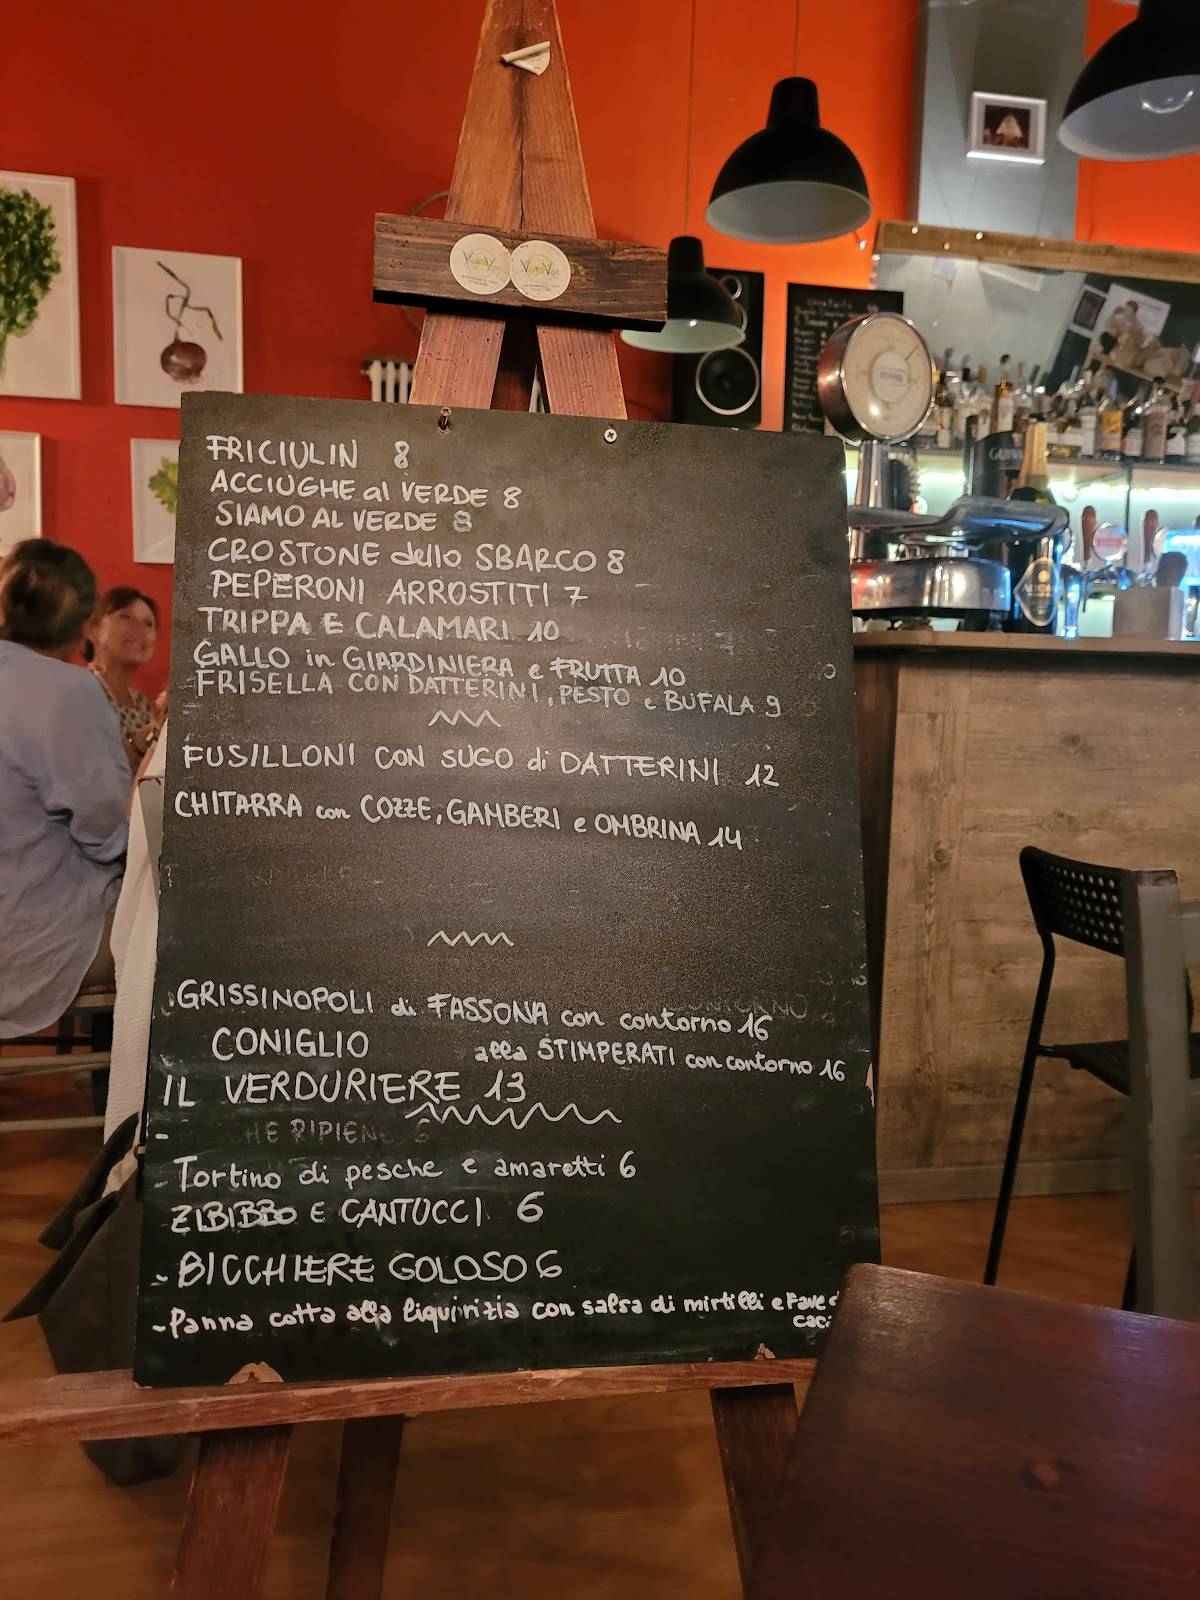 FRICIULIN 8
ACCIUGHE al VERDE 8
SIAMO AL VERDE 8
CROSTONE dello SBARCO 8
PEPERONI ARROSTITI 7
TRIPPA E CALAMARI 10
GALLO in GIARDINIERA e FRUTTA 10
FRISELLA CON DATTERINI, PESTO e BUFALA 9
FUSILLONI CON SUGO di DATTERINI 12
CHITARRA con COZZE, GAMBERI e OMBRINA 14
GRISSINOPOLI di FASSONA con contorno 16
CONIGLIO alla STIMPERATI con contorno 16
IL VERDURIERE 13
- RIPIENE 6
- Tortino di pesche e amaretti 6
- ZIBIBBO E CANTUCCI 6
- BICCHIERE GOLOSO 6
- Panna cotta alla liquirizia con salsa di mirtilli e Fave
GUINNESS